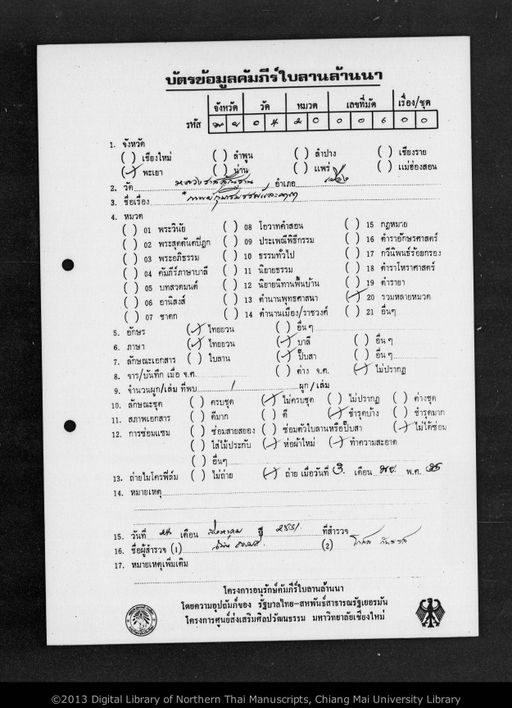 บัตรข้อมูลคัมภีร์ใบลานล้านนา
จังหวัด วัด หมวด เลขที่มัด เรื่อง/ชุด
รหัส ๐ ๔ ๒ ๐ ๐ ๐ ๖ ๐ ๐
1. จังหวัด
( ) เชียงใหม่ ( ) ลำพูน ( ) ลำปาง ( ) เชียงราย
(✓) พะเยา ( ) น่าน ( ) แพร่ ( ) แม่ฮ่องสอน
2. วัด อำเภอ เมือง
3. ชื่อเรื่อง
4. หมวด
( ) 01 พระวินัย ( ) 08 โอวาทคำสอน ( ) 15 กฎหมาย
( ) 02 พระสุตตันตปิฎก ( ) 09 ประเพณีพิธีกรรม ( ) 16 ตำราอักษรศาสตร์
( ) 03 พระอภิธรรม ( ) 10 ธรรมทั่วไป ( ) 17 กวีนิพนธ์ร้อยกรอง
( ) 04 คัมภีร์ภาษาบาลี ( ) 11 นิยายธรรม ( ) 18 ตำราโหราศาสตร์
( ) 05 บทสวดมนต์ ( ) 12 นิยายนิทานพื้นบ้าน ( ) 19 ตำรายา
( ) 06 อานิสงส์ ( ) 13 ตำนานพุทธศาสนา (✓) 20 รวมหลายหมวด
( ) 07 ชาดก ( ) 14 ตำนานเมือง/ราชวงศ์ ( ) 21 อื่นๆ
5. อักษร (✓) ไทยยวน ( ) อื่น ๆ
6. ภาษา (✓) ไทยยวน (✓) บาลี ( ) อื่น ๆ
7. ลักษณะเอกสาร ( ) ใบลาน (✓) ปั๊บสา ( ) อื่น ๆ
8. จาร/บันทึก เมื่อ จ.ศ. ( ) ค่าง จ.ศ. (✓) ไม่ปรากฏ
9. จำนวนผูก/เล่ม ที่พบ 1 ผูก / เล่ม
10. ลักษณะชุด ( ) ครบชุด (✓) ไม่ครบชุด ( ) ไม่ปรากฏ ( ) ต่างชุด
11. สภาพเอกสาร ( ) ดีมาก ( ) ดี (✓) ชำรุดบ้าง ( ) ชำรุดมาก
12. การซ่อมแซม ( ) ซ่อมสายสยอง ( ) ซ่อมตัวใบลานหรือปั๊บสา (✓) ไม่ได้ซ่อม
( ) ใส่ไม้ประกับ (✓) ห่อผ้าใหม่ (✓) ทำความสะอาด
( ) อื่นๆ
13. ถ่ายไมโครฟิล์ม ( ) ไม่ถ่าย (✓) ถ่าย เมื่อวันที่ 3 เดือน พ.ศ.
14. หมายเหตุ
15. วันที่ เดือน สิงหาคม ปี ที่สำรวจ
16. ชื่อผู้สำรวจ (1) (2)
17. หมายเหตุเพิ่มเติม
โครงการอนุรักษ์คัมภีร์ใบลานล้านนา
โดยความอุปถัมภ์ของ รัฐบาลไทย-สหพันธ์สาธารณรัฐเยอรมัน
โครงการศูนย์ส่งเสริมศิลปวัฒนธรรม มหาวิทยาลัยเชียงใหม่
©2013 Digital Library of Northern Thai Manuscripts, Chiang Mai University Library